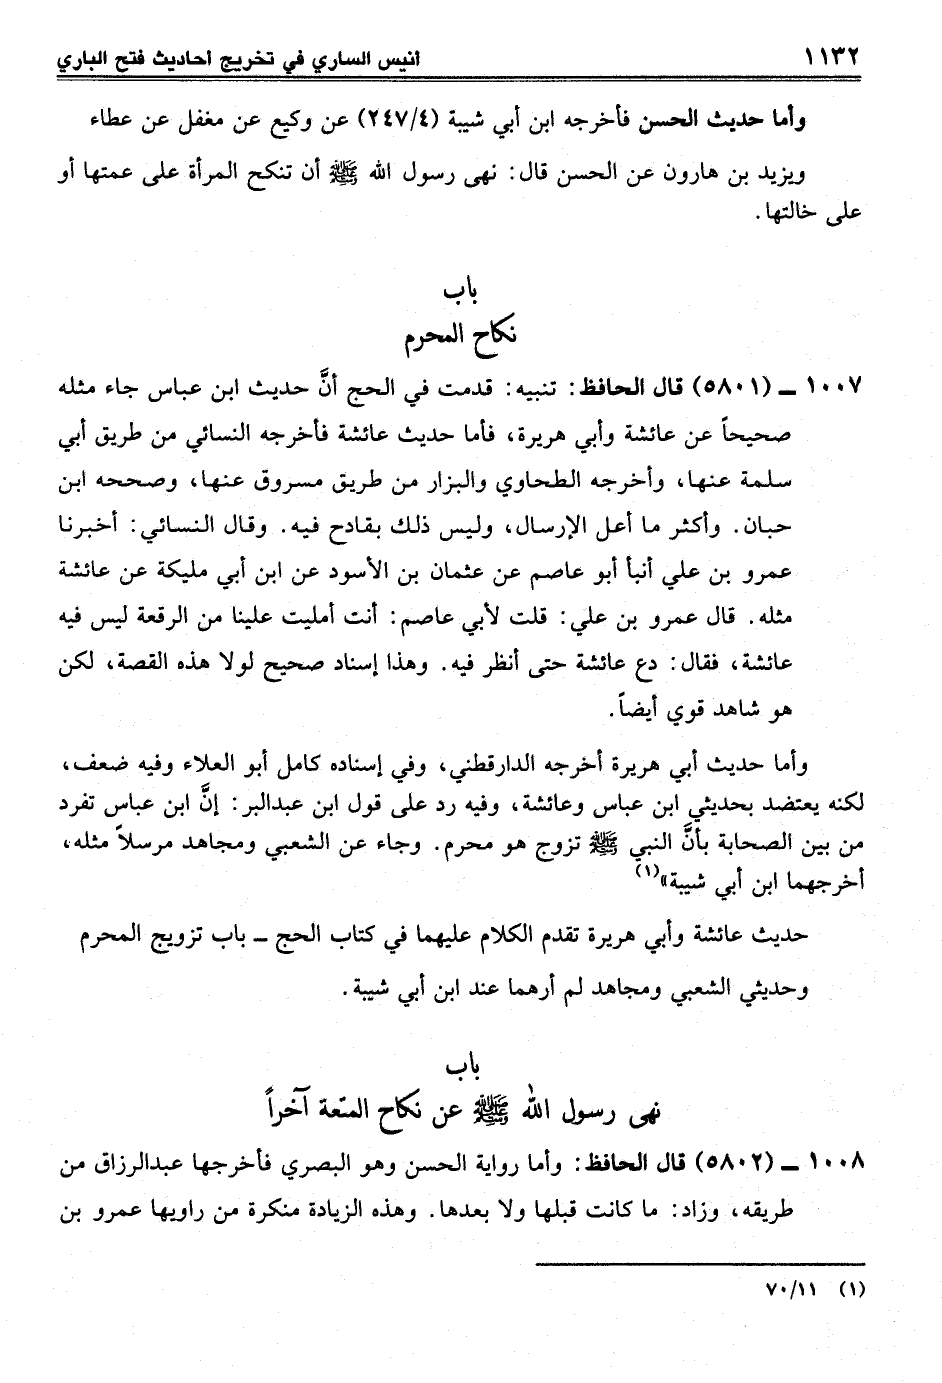 ١١٣٢ أنيس الساري في تخريج أحاديث فتح الباري
وأما حديث الحسن فأخرجه ابن أبي شيبة (٢٤٧/٤) عن وكيع عن مغفل عن عطاء
ويزيد بن هارون عن الحسن قال: نهى رسول الله ﷺ أن تنكح المرأة على عمتها أو
على خالتها.
باب
نكاح المحرم
١٠٠٧ ـ (٥٨٠١) قال الحافظ: تنبيه: قدمت في الحج أنَّ حديث ابن عباس جاء مثله
صحيحاً عن عائشة وأبي هريرة، فأما حديث عائشة فأخرجه النسائي من طريق أبي
سلمة عنها، وأخرجه الطحاوي والبزار من طريق مسروق عنها، وصححه ابن
حبان. وأكثر ما أعل الإرسال، وليس ذلك بقادح فيه. وقال النسائي: أخبرنا
عمرو بن علي أنبأ أبو عاصم عن عثمان بن الأسود عن ابن أبي مليكة عن عائشة
مثله. قال عمرو بن علي: قلت لأبي عاصم: أنت أمليت علينا من الرقعة ليس فيه
عائشة، فقال: دع عائشة حتى أنظر فيه. وهذا إسناد صحيح لولا هذه القصة، لكن
هو شاهد قوي أيضاً.
وأما حديث أبي هريرة أخرجه الدارقطني، وفي إسناده كامل أبو العلاء وفيه ضعف،
لكنه يعتضد بحديثي ابن عباس وعائشة، وفيه رد على قول ابن عبدالبر: إنَّ ابن عباس تفرد
من بين الصحابة بأنَّ النبي ﷺ تزوج هو محرم. وجاء عن الشعبي ومجاهد مرسلاً مثله،
أخرجهما ابن أبي شيبة»(١)
حديث عائشة وأبي هريرة تقدم الكلام عليهما في كتاب الحج ـ باب تزويج المحرم
وحديثي الشعبي ومجاهد لم أرهما عند ابن أبي شيبة.
باب
نهى رسول الله ﷺ عن نكاح المتعة آخراً
١٠٠٨ ـ (٥٨٠٢) قال الحافظ: وأما رواية الحسن وهو البصري فأخرجها عبدالرزاق من
طريقه، وزاد: ما كانت قبلها ولا بعدها. وهذه الزيادة منكرة من راويها عمرو بن
(١) ٧٠/١١